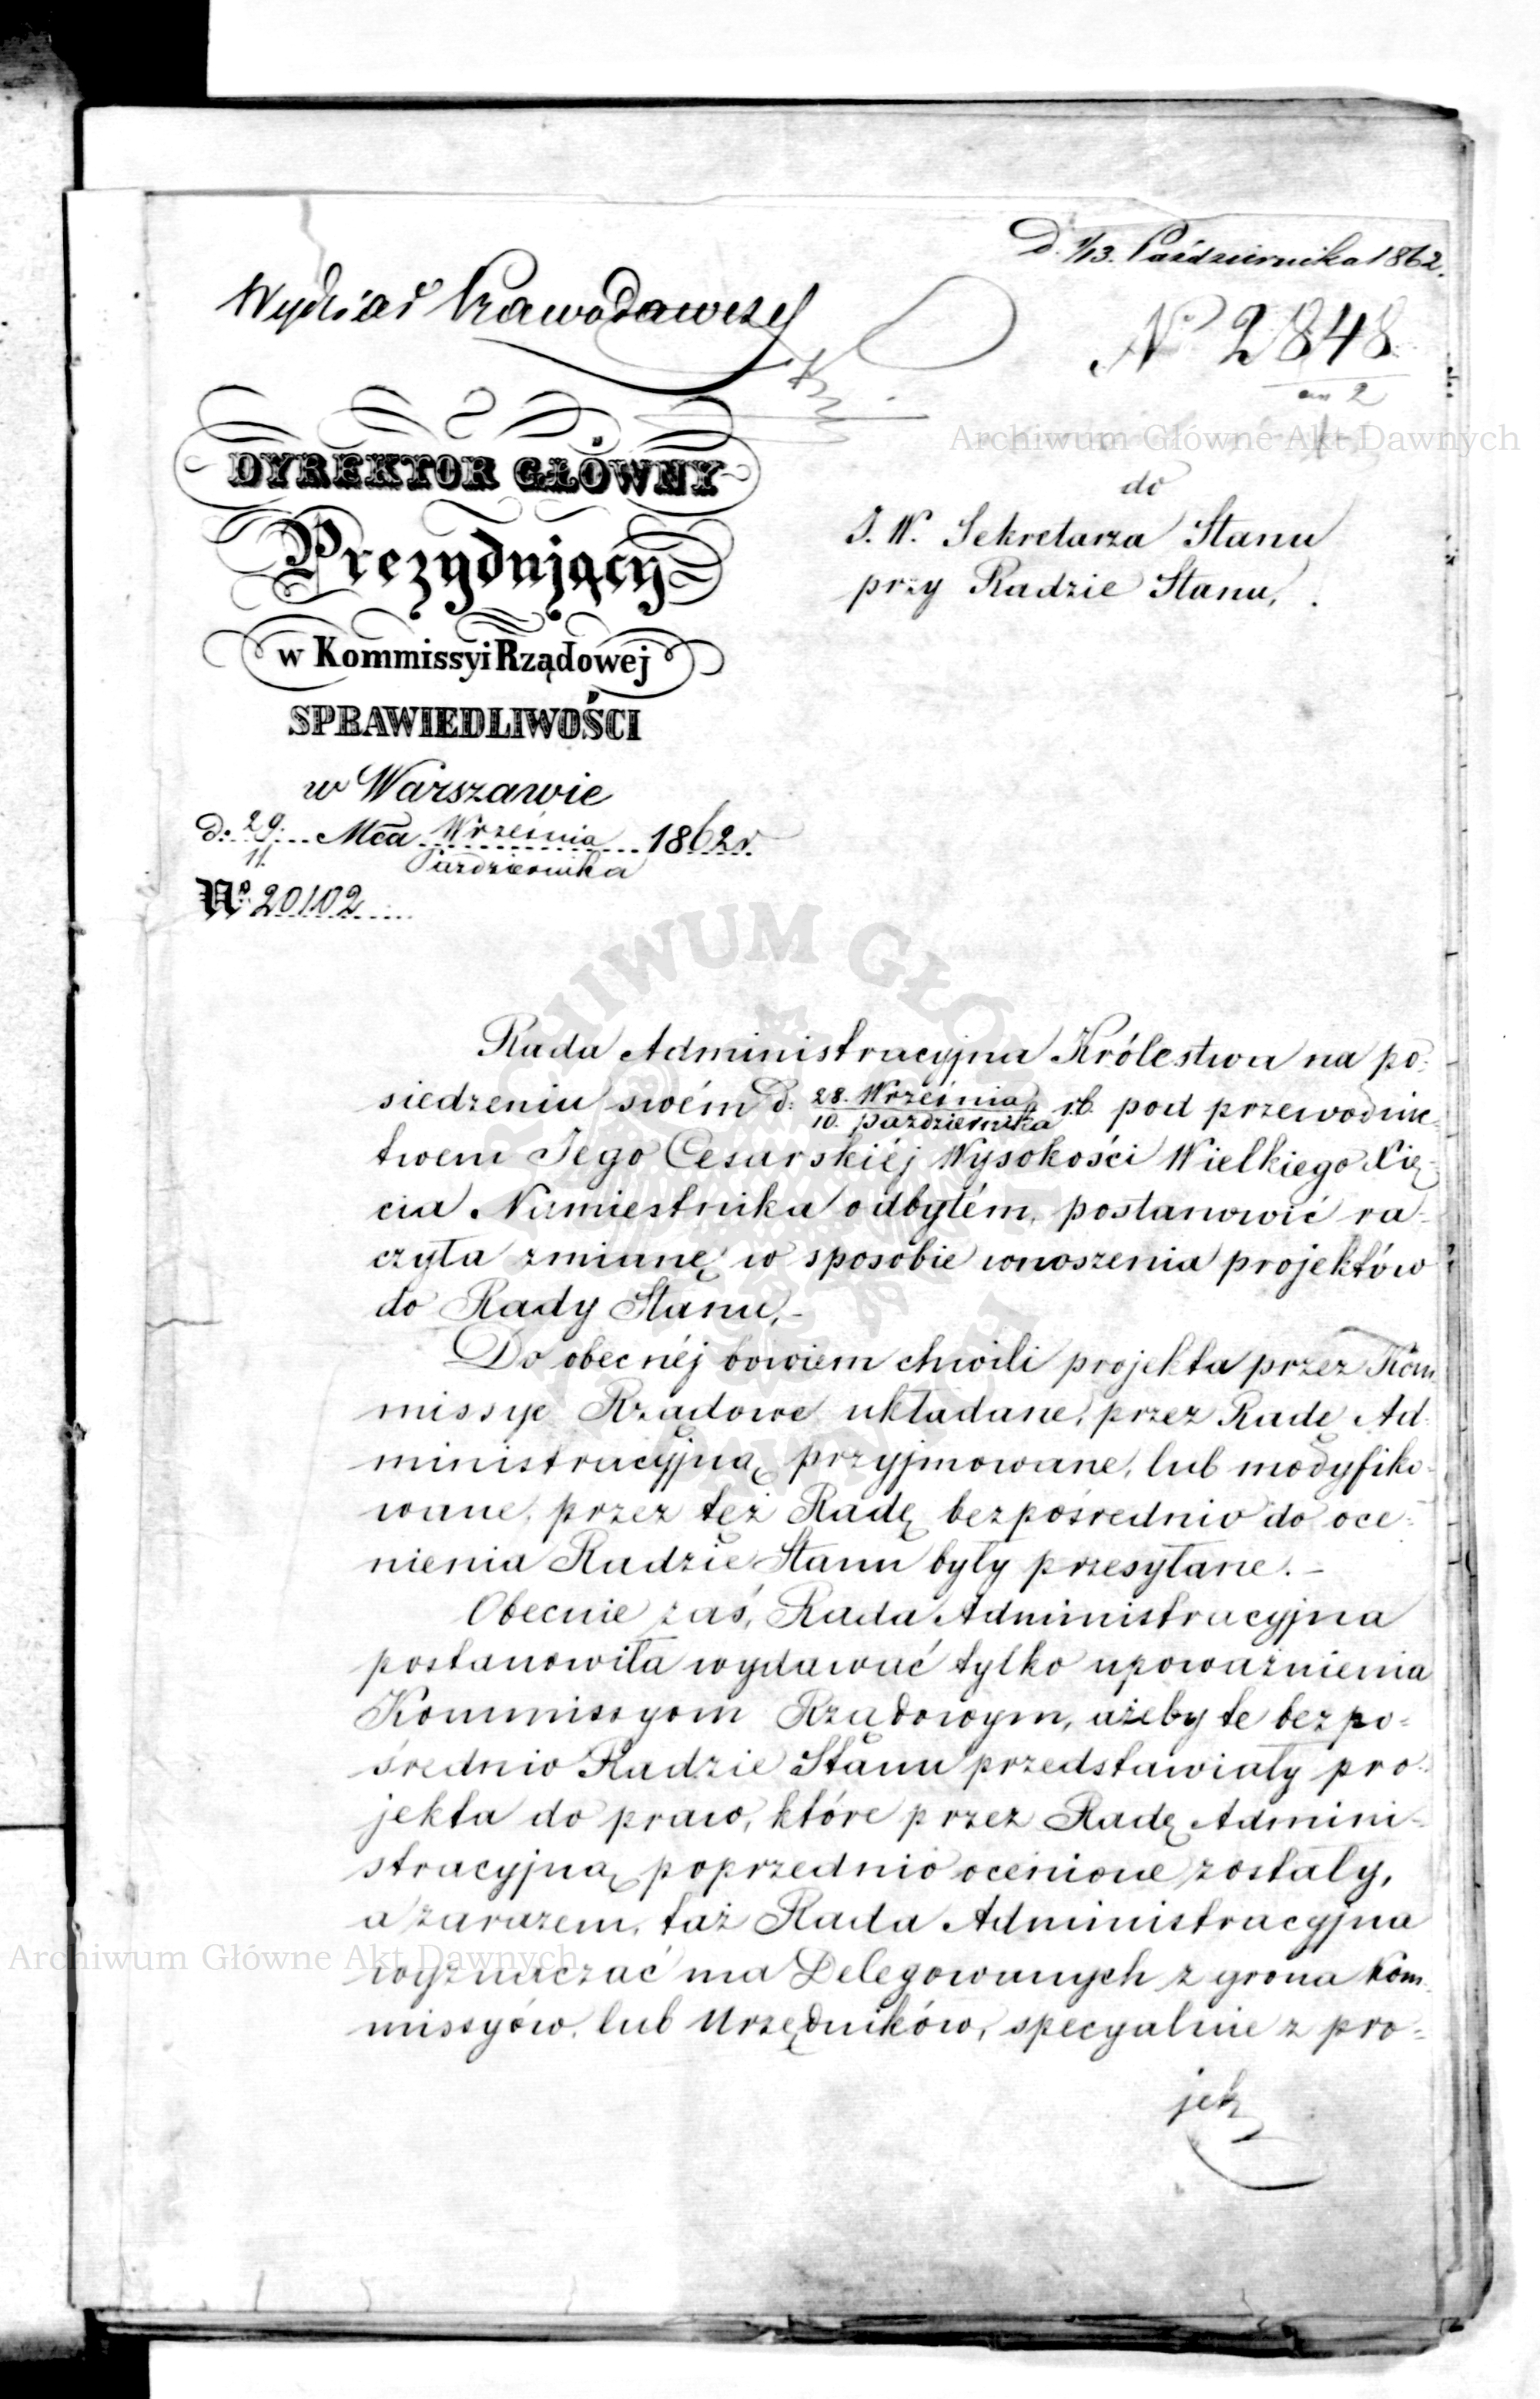 D. 1/13. Października 1862.
Wydział Prawodawczy
No 2848
an 2
Archiwum Główne Akt Dawnych
DYREKTOR GŁÓWNY
Prezydujący
w Kommissyi Rządowej
SPRAWIEDLIWOŚCI
w Warszawie
d: 29. Mca Września 1862 r.
11. Października
No 20102
do
J. W. Sekretarza Stanu
przy Radzie Stanu,
Rada Administracyjna Królestwa na po-
siedzeniu swém d: 28. Września r.b. pod przewodnic-
10. października
twem Jego Cesarskiéj Wysokości Wielkiego Xię-
cia Namiestnika odbytém, postanowić ra-
czyła zmianę w sposobie wnoszenia projektów
do Rady Stanu,-
Do obecnéj bowiem chwili projekta przez Kom
missye Rządowe układane, przez Radę Ad-
ministracyjną przyjmowane, lub modyfiko-
wane, przez też Radę bezpośrednio do oce-
nienia Radzie Stanu były przesyłane.-
Obecnie zaś, Rada Administracyjna
postanowiła wydawać tylko upoważnienia
Kommissyom Rządowym, ażeby te bezpo-
średnio Radzie Stanu przedstawiały pro-
jekta do praw, które przez Radę Admini-
stracyjną poprzednio ocenione zostały,
a zarazem, taż Rada Administracyjna
Archiwum Główne Akt Dawnych
wyznaczać ma Delegowanych z grona Kom
missyów, lub Urzędników, specyalnie z pro-
jek
ARCHIWUM GŁÓWNE AKT DAWNYCH